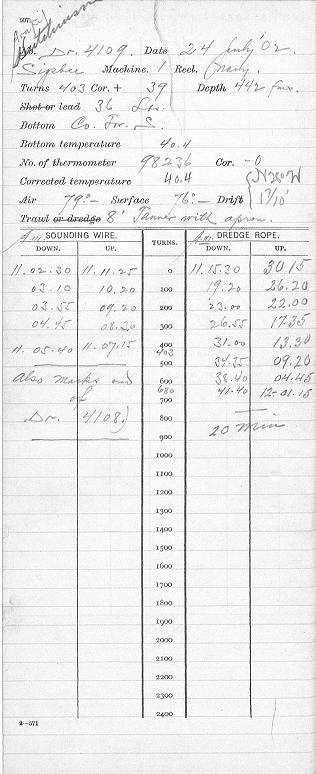 507.
No. Dr. 4109. Date 24 July '02.
Sigsbee Machine. 1 Reel. Navy.
Turns 403 Cor. + 39 Depth 442 fms.
Shot or lead 36 Lbs.
Bottom Co. For. S.
Bottom temperature 40.4
No. of thermometer 98236 Cor. -0
Corrected temperature 40.4
Air 79°- Surface 76°- Drift
1 7/10'
Trawl or dredge 8' Tanner with apron.
A.M. SOUNDING WIRE. TURNS. A.M. DREDGE ROPE.
DOWN. UP. DOWN. UP.
11.02.30 11.11.25 0 11.15.30 30 15
03.10 10.20 100 19.20 26.20
03.55 09.20 200 23.00 22.00
04.45 08.20 300 26.55 17.35
11.05.40 11.07.15 400 31.00 13.30
403
500 34.35 09.20
Also marks end 600 38.40 04.45
of 680 41.40 12-01.15
700
Dr. 4108.) 800
900 20 Min
1000
1100
1200
1300
1400
1500
1600
1700
1800
1900
2000
2100
2200
2300
2400
2—571